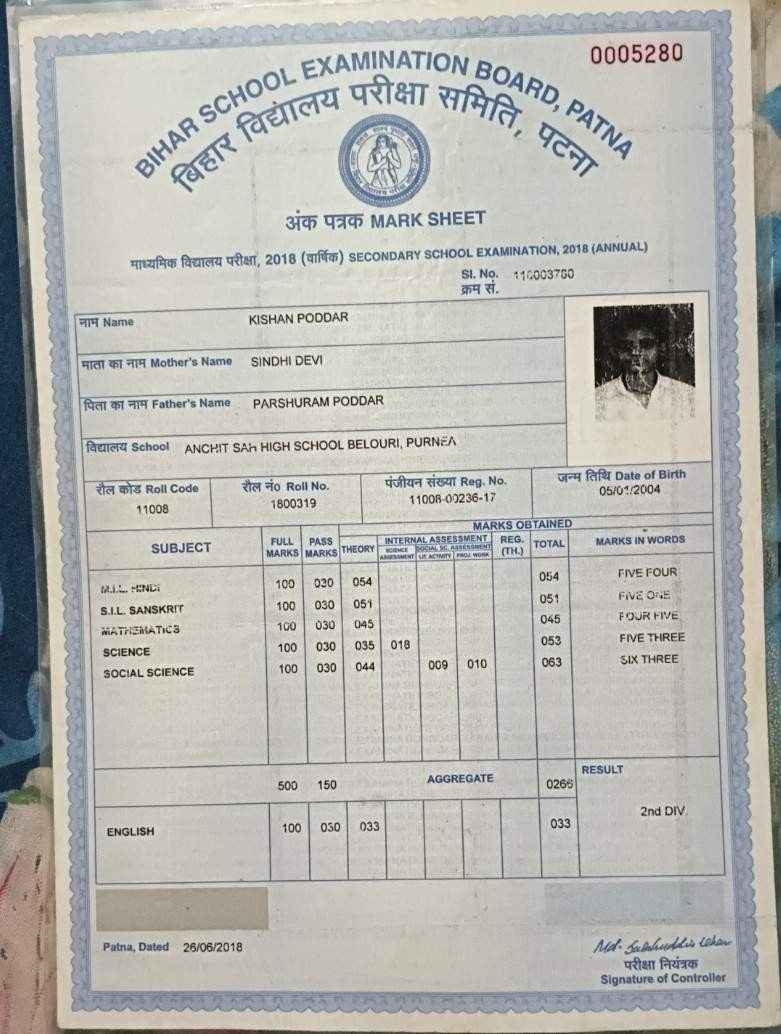 0005280
BIHAR SCHOOL EXAMINATION BOARD, PATNA
बिहार विद्यालय परीक्षा समिति, पटना
अंक पत्रक MARK SHEET
माध्यमिक विद्यालय परीक्षा, 2018 (वार्षिक) SECONDARY SCHOOL EXAMINATION, 2018 (ANNUAL)
Sl. No.
क्रम सं.
नाम Name KISHAN PODDAR
माता का नाम Mother's Name SINDHI DEVI
पिता का नाम Father's Name PARSHURAM PODDAR
विद्यालय School ANCHIT SAH HIGH SCHOOL BELOURI, PURNEA
रौल कोड Roll Code रौल नं० Roll No. पंजीयन संख्या Reg. No. जन्म तिथि Date of Birth
11008 1800319 11008-00236-17
MARKS OBTAINED
SUBJECT FULL MARKS PASS MARKS THEORY INTERNAL ASSESSMENT REG. (TH.) TOTAL MARKS IN WORDS
SCIENCE ASSESSMENT SOCIAL SC. ASSESSMENT LIT. ACTIVITY PROJ. WORK
M.I.L. HINDI 100 030 054 054 FIVE FOUR
S.I.L. SANSKRIT 100 030 051 051 FIVE ONE
MATHEMATICS 100 030 045 045 FOUR FIVE
SCIENCE 100 030 035 018 053 FIVE THREE
SOCIAL SCIENCE 100 030 044 009 010 063 SIX THREE
500 150 AGGREGATE 0266 RESULT
2nd DIV.
ENGLISH 100 030 033 033
Patna, Dated 26/06/2018
परीक्षा नियंत्रक
Signature of Controller